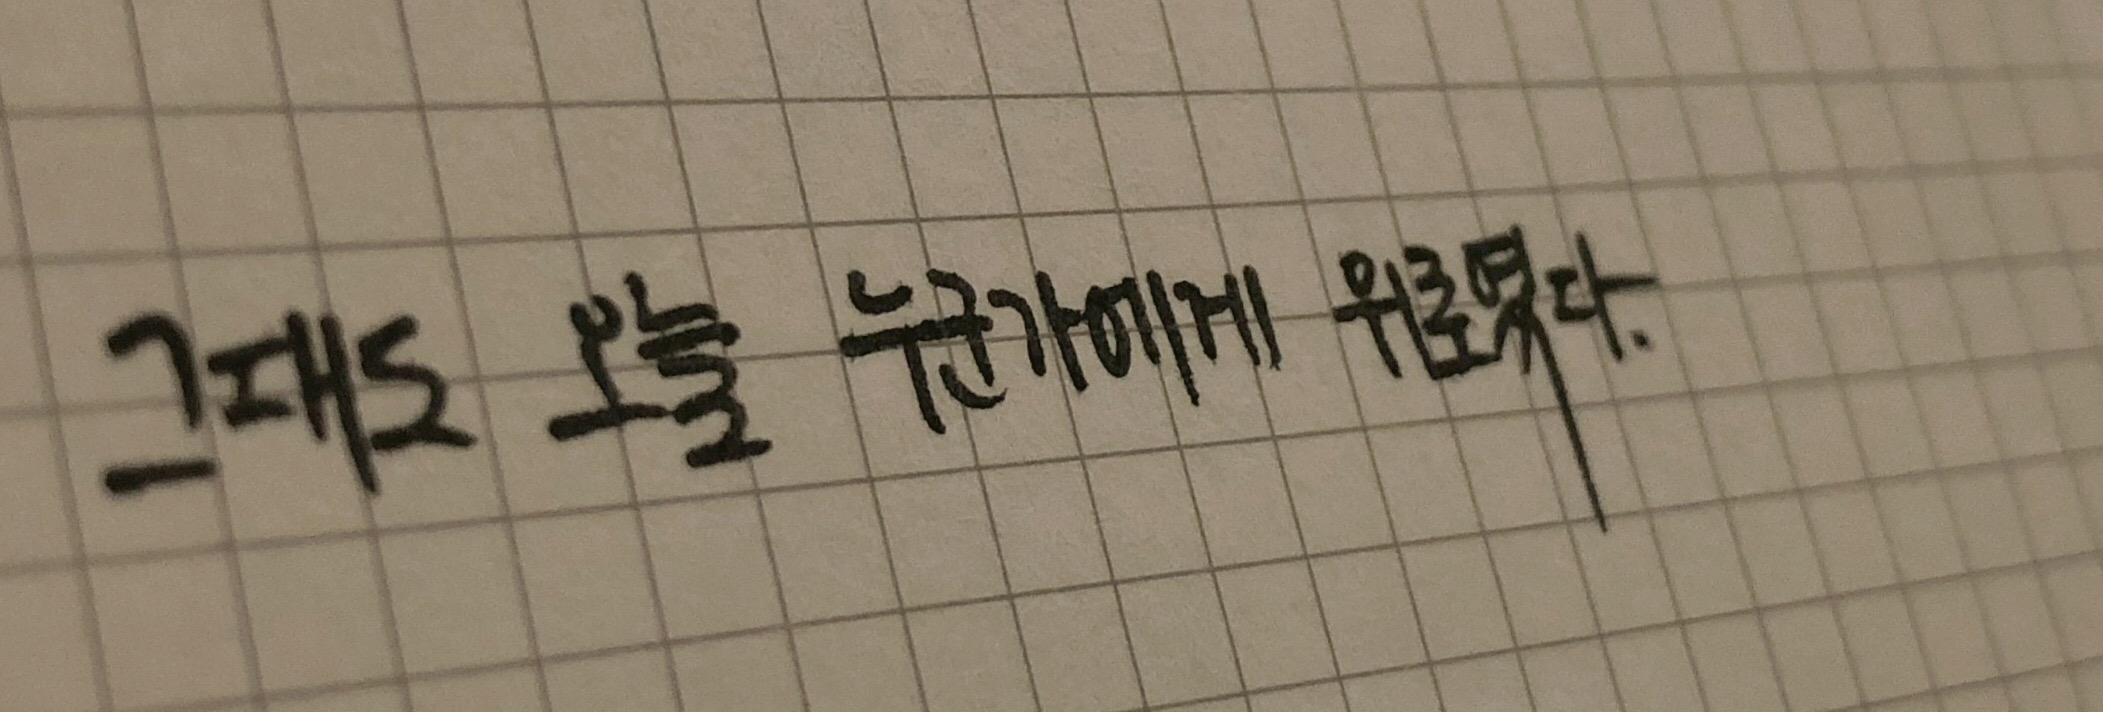 그래도 오늘 누군가에게 위로였다.